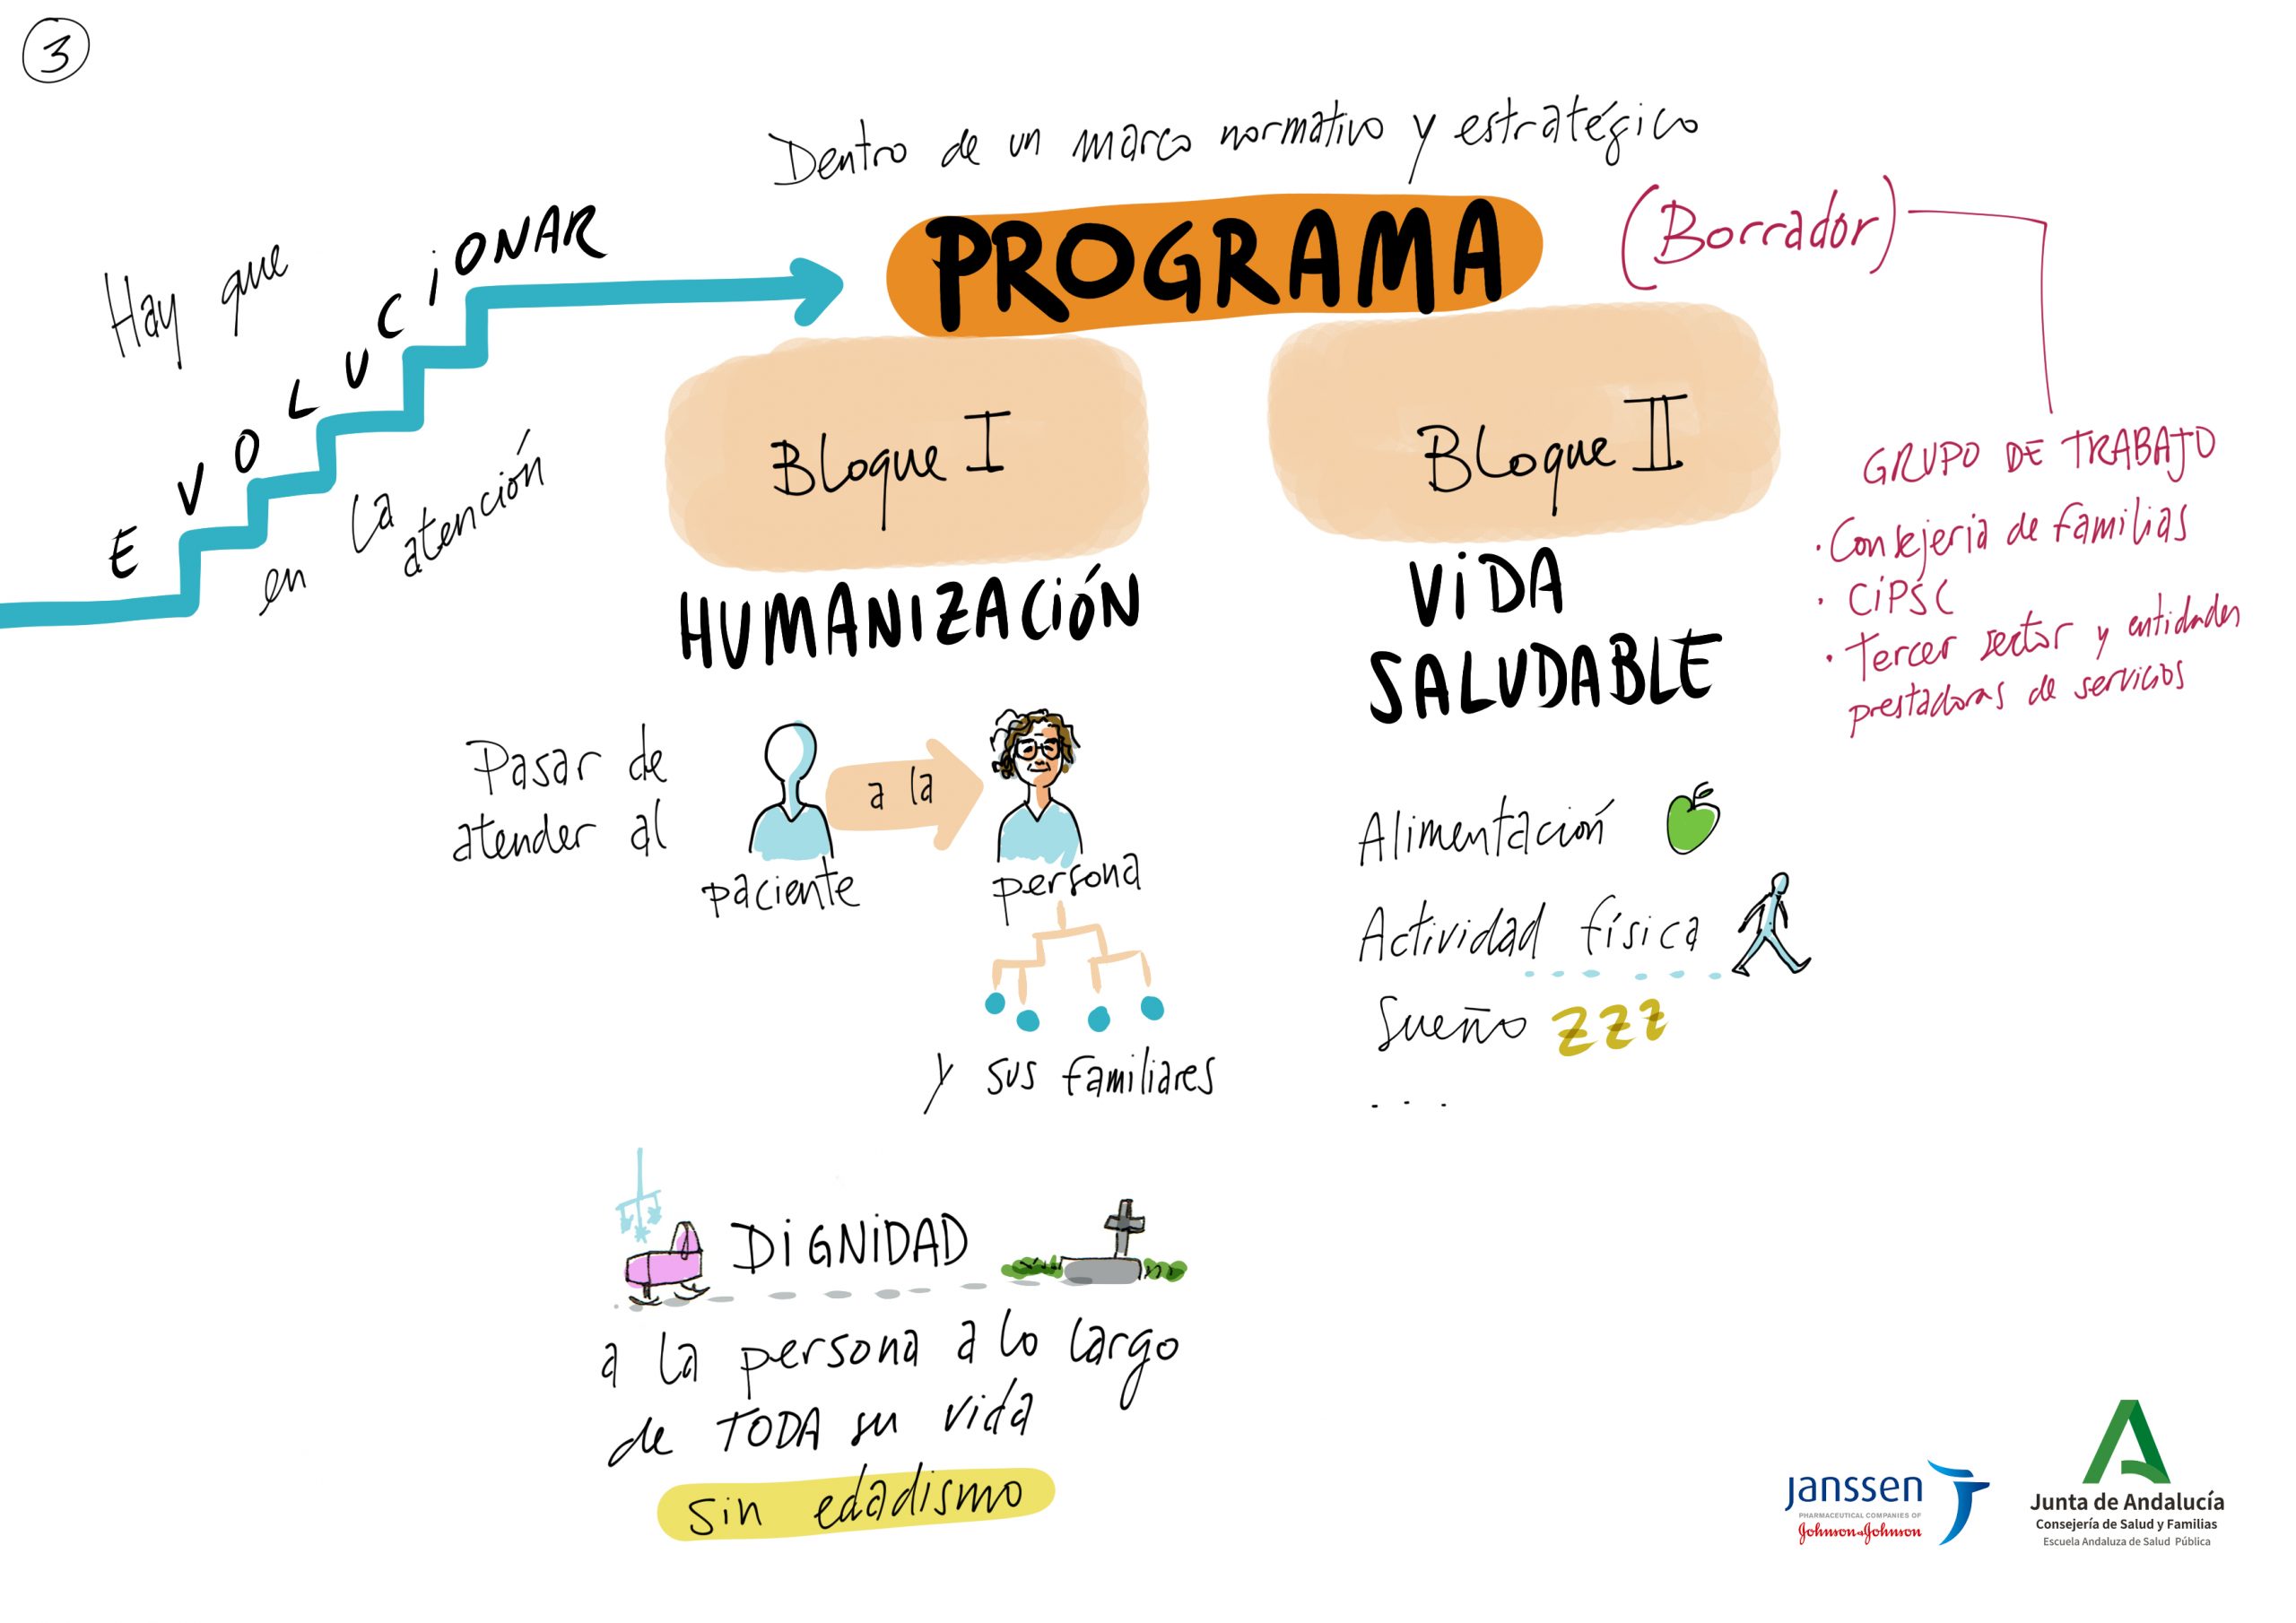 3
Dentro de un marco normativo y estratégico
Hay que
EVOLUCiONAR
en la
atención
PROGRAMA
(Borrador)
GRUPO DE TRABAJO
· Consejeria de familias
· CiPSC
· Tercer sector y entidades
prestadoras de servicios
Bloque I
HUMANIZACiÓN
Pasar de
atender al
paciente
a la
persona
y sus familiares
DiGNiDAD
a la persona a lo largo
de TODA su vida
sin edadismo
Bloque II
ViDA
SALUDABLE
Alimentación
Actividad física
Sueño zzz
...
janssen
PHARMACEUTICAL COMPANIES OF
Johnson & Johnson
Junta de Andalucía
Consejería de Salud y Familias
Escuela Andaluza de Salud Pública